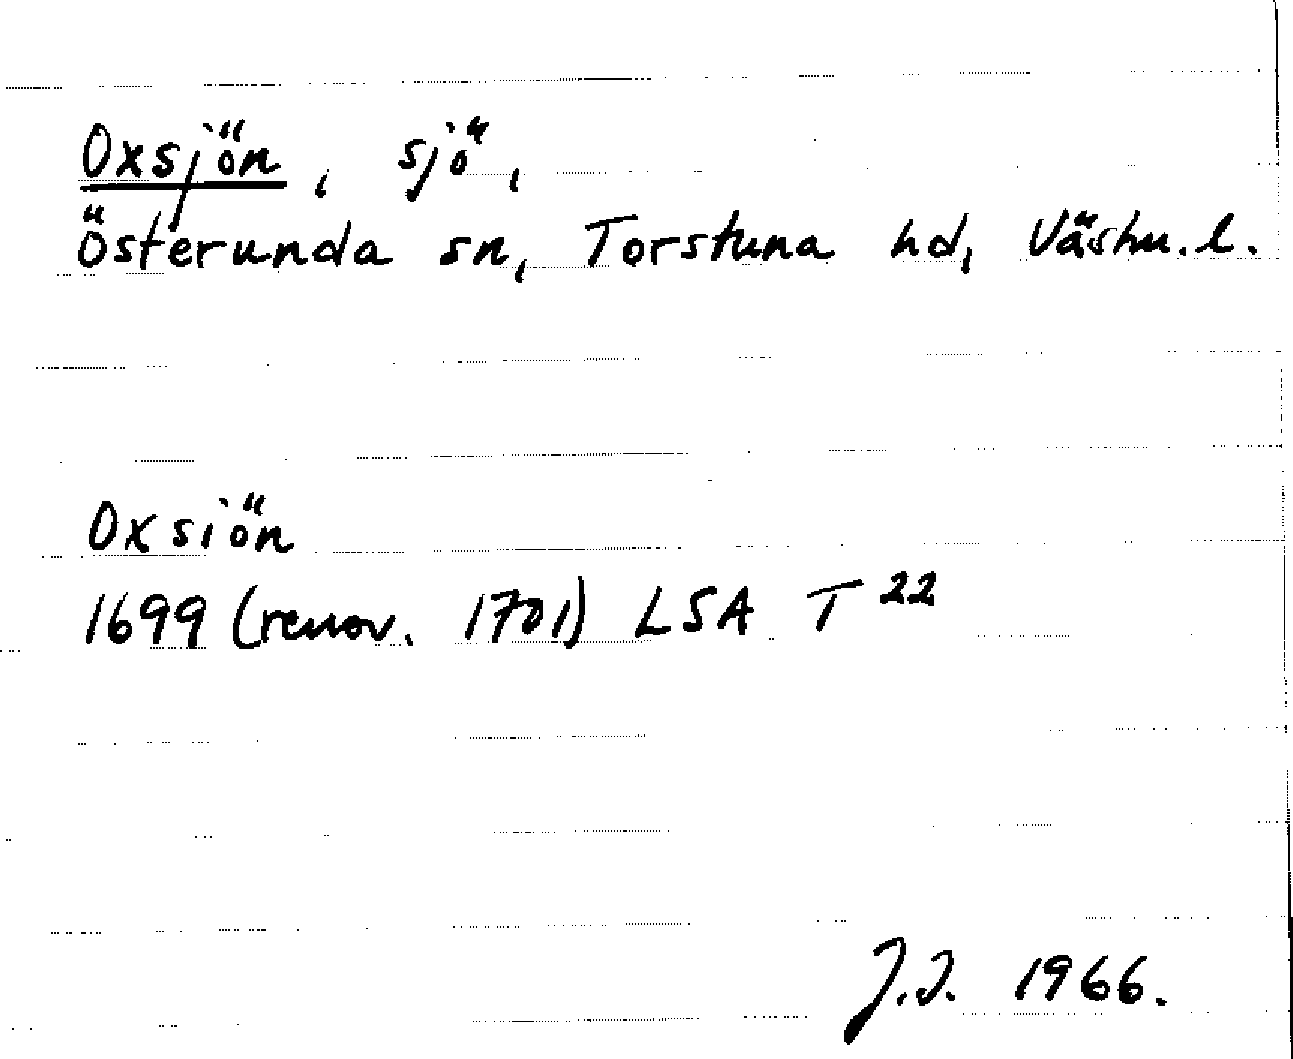 Oxsjön, sjö,
Österunda sn, Torstuna hd, Västm. l.
Oxsiön
1699 (renov. 1701) LSA T 22
J.J. 1966.